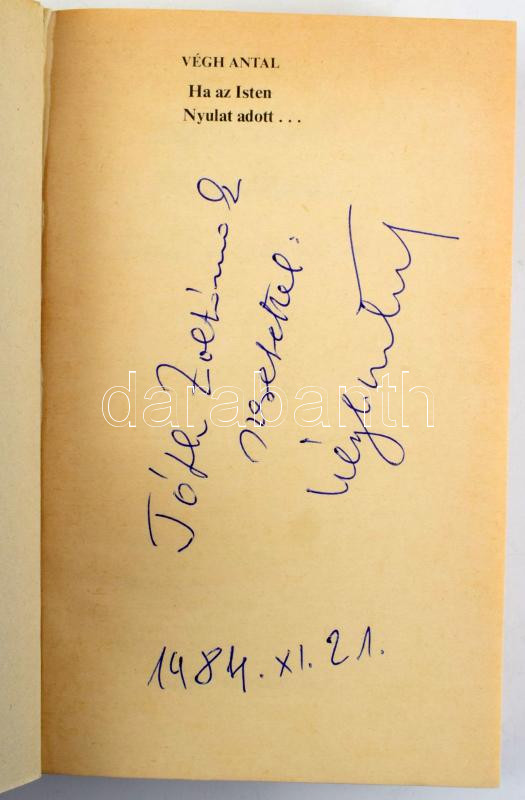 VÉGH ANTAL
Ha az Isten
Nyulat adott . . .
Tóth Zoltánnak
szeretettel:
Végh Antal
1984. XI. 21.
darabanth